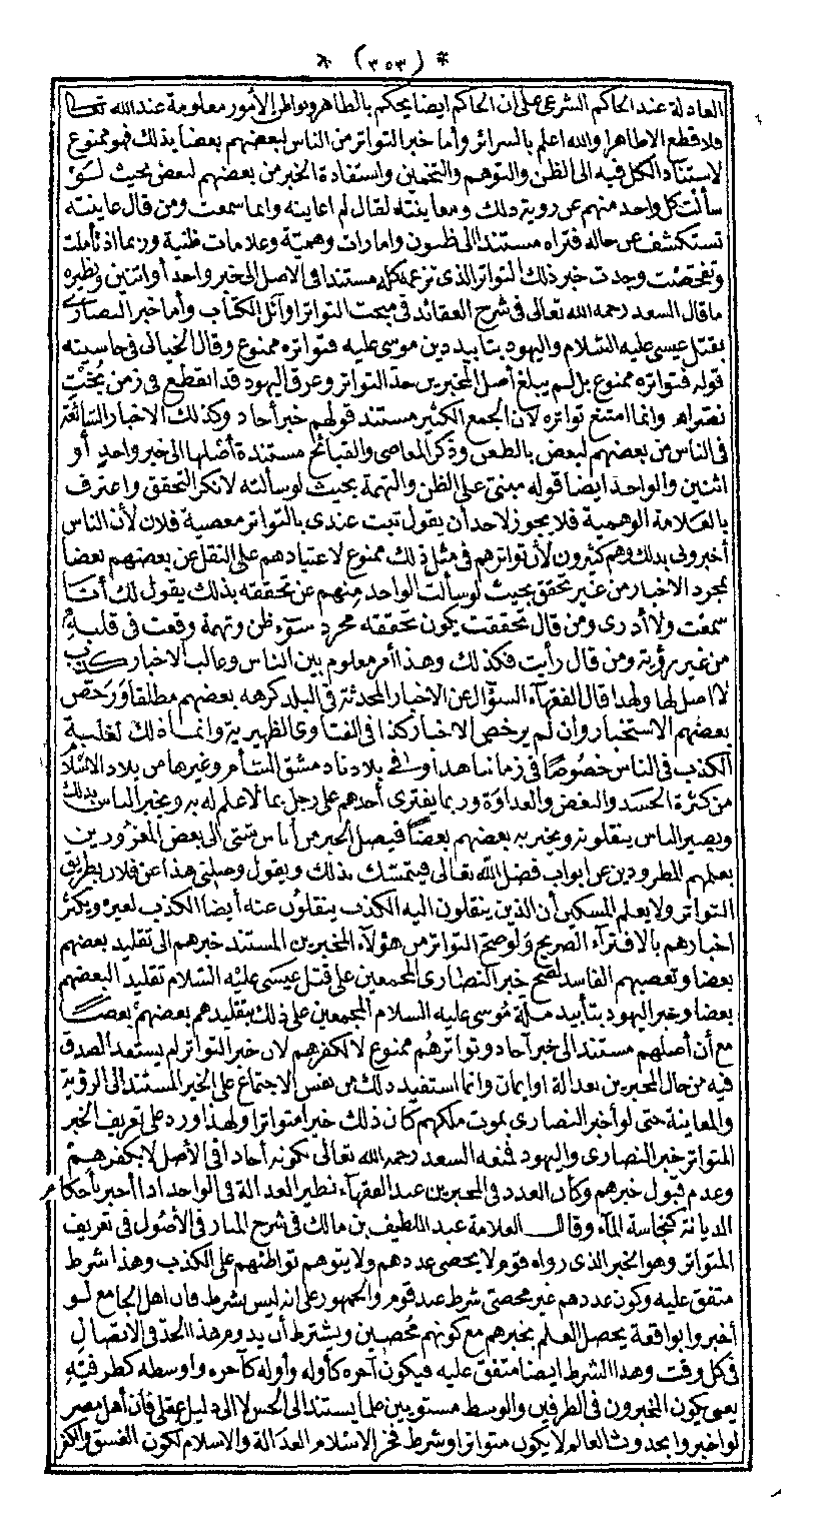 * (٣٥٣) *
العادلة عند الحاكم الشرعى على ان الحاكم ايضا يحكم بالظاهر وبواطن الأمور معلومة عند الله تعالى
فلا قطع الا ظاهرا والله اعلم بالسرائر وأما خبر التواتر من الناس لبعضهم بعضا بذلك فهو ممنوع
لاستناد الكل فيه الى الظن والتوهم والتخمين واستفادة الخبر من بعضهم لبعض بحيث لـو
سألت كل واحد منهم عن رؤية ذلك ومعاينته لقال لم اعاينه وانما سمعت ومن قال عاينته
تستكشف عن حاله فتراه مستندا الى ظنون وامارات وهمية وعلامات ظنية وربما اذا تأملت
وتفحصت وجدت خبر ذلك التواتر الذى تزعمه كله مستندا فى الاصل الى خبر واحد أو اثنين ونظيره
ما قال السعد رحمه الله تعالى فى شرح العقائد فى مبحث التواتر اوائل الكتاب وأما خبر النصارى
بقتل عيسى عليه السلام واليهود بتأبيد دين موسى عليه فتواتره ممنوع وقال الخيالى فى حاشيته
قوله فتواتره ممنوع بل لم يبلغ أصل المخبرين حد التواتر وعرق اليهود قد انقطع فى زمن بخت
نصراهـ وانما امتنع تواتره لان الجمع الكثير مستند قولهم خبر آحاد وكذلك الاخبار الشائعة
فى الناس من بعضهم لبعض بالطعن وذكر المعاصى والقبائح مستندة أصلها الى خبر واحد أو
اثنين والواحد ايضا قوله مبنى على الظن والتهمة بحيث لو سألته لانكر التحقق واعترف
بالعلامة الوهمية فلا يجوز لاحد أن يقول ثبت عندى بالتواتر معصية فلان لأن الناس
أخبرونى بذلك وهم كثيرون لأن تواترهم فى مثل ذلك ممنوع لاعتيادهم على النقل عن بعضهم بعضا
لمجرد الاخبار من غير تحقق بحيث لو سألت الواحد منهم عن تحققه بذلك يقول لك أنـا
سمعت ولا أدرى ومن قال تحققت يكون تحققه مجرد سوء ظن وتهمة وقعت فى قلبه
من غير رؤية ومن قال رأيت فكذلك وهذا أمر معلوم بين الناس وغالب الاخبار كذب
لا اصل لها ولهذا قال الفقهاء السؤال عن الاخبار المحدثة فى البلد كرهه بعضهم مطلقا ورخص
بعضهم الاستخبار وان لم يرخص الاخبار كذا فى الفتاوى الظهيرية وانما ذلك لغلبة
الكذب فى الناس خصوصًا فى زماننا هذا وفى بلادنا دمشق الشام وغيرها من بلاد الاسلام
من كثرة الحسد والبغض والعداوة وربما يفترى أحدهم على رجل بما لا علم له به ويخبر الناس بذلك
ويصير الناس ينقلونه ويخبر به بعضهم بعضًا فيصل الخبر من أناس شتى الى بعض المغرورين
بعلمهم المطرودين عن ابواب فضل الله تعالى فيتمسك بذلك ويقول وصلنى هذا عن فلان بطريق
التواتر ولا يعلم المسكين أن الذين ينقلون اليه الكذب ينقلون عنه أيضا الكذب لغيره ويكثر
اخبارهم بالافتراء الصريح ولو صح التواتر من هؤلاء المخبرين المستند خبرهم الى تقليد بعضهم
بعضا وتعصبهم الفاسد لصح خبر النصارى المجمعين على قتل عيسى عليه السلام تقليد البعضهم
بعضا وخبر اليهود بتأبيد ملة موسى عليه السلام المجمعين على ذلك بتقليدهم بعضهم بعضـا
مع أن أصلهم مستند الى خبر آحاد وتواترهم ممنوع لا لكفرهم لان خبر التواتر لم يستفد الصدق
فيه من حال المخبرين بعدالة او ايمان وانما استفيد ذلك من نفس الاجتماع على الخبر المستند الى الرؤية
والمعاينة حتى لو أخبر النصارى بموت ملكهم كان ذلك خبرا متواترا ولهذا ورد على تعريف الخبر
المتواتر خبر النصارى واليهود فمنعه السعد رحمه الله تعالى بكونه آحادا فى الأصل لا بكفرهـم
وعدم قبول خبرهم وكأن العدد فى المخبرين عند الفقهاء نظير العدالة فى الواحد اذا أخبر بأحكام
الديانة كنجاسة الماء وقال العلامة عبد اللطيف بن مالك فى شرح المنار فى الأصول فى تعريف
المتواتر وهو الخبر الذى رواه قوم لا يحصى عددهم ولا يتوهم تواطئهم على الكذب وهذا شرط
متفق عليه وكون عددهم غير محصى شرط عند قوم والجمهور على انه ليس بشرط فان اهل الجامع لـو
أخبروا بواقعة يحصل العلم بخبرهم مع كونهم محصين ويشترط أن يدوم هذا الحد فى الاتصال
فى كل وقت وهذا الشرط ايضا متفق عليه فيكون آخره كأوله وأوله كآخره وأوسطه كطرفيه
يعنى يكون المخبرون فى الطرفين والوسط مستويين علما يستند الى الحس لا الى دليل عقلى فان أهل مصر
لو أخبروا بحدوث العالم لا يكون متواترا وشرط فخر الاسلام العدالة والاسلام لكون الفسق والكفر